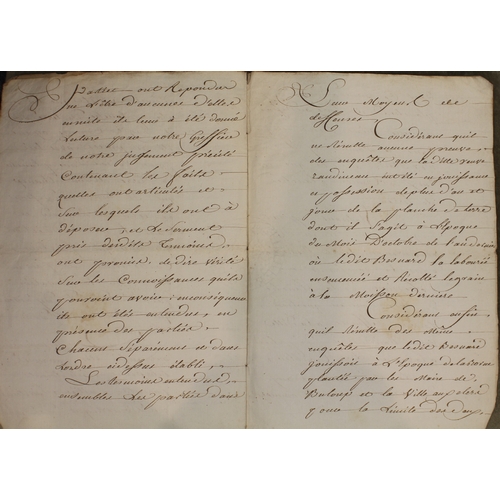 ont Repondu
ne L'être d'aucunes d'elles
ensuite il leur a été donné
Lecture par notre Greffier
de notre jugement précité
Contenant les faits
quelles ont articulés et
Sur lesquels ils ont à
déposer et Le Serment
pris desdits Temoins,
ont promis de dire Vérité
Sur les Connoissances qu'ils
pouroient avoir, en consequence
ils ont été entendus, en
présence des parties
Chacun Séparément et dans
Lordre cidessus établi,
Les temoins entendus,
ensembles Les parties dans
Leurs Moyens de
deffenses
Considérant qu'il
ne Résulte aucune preuve
des enquêtes que laditte veuve
ait été en jouissance
en possession de plus d'un et
jour de la planche de terre
dont il Sagit à L'Epoque
du Mois D'octobre de Lan dernier
où ledit Besnard la labourée
ensemencée et Recolté le grain
à la Moisson derniere
Considérant aussi
quil Résulte des Même
enquêtes que ledit Besnard
jouissoit à L'Epoque de la borne
plantée par les Maire de
et la Ville aux clercs
pour la Limite des deux